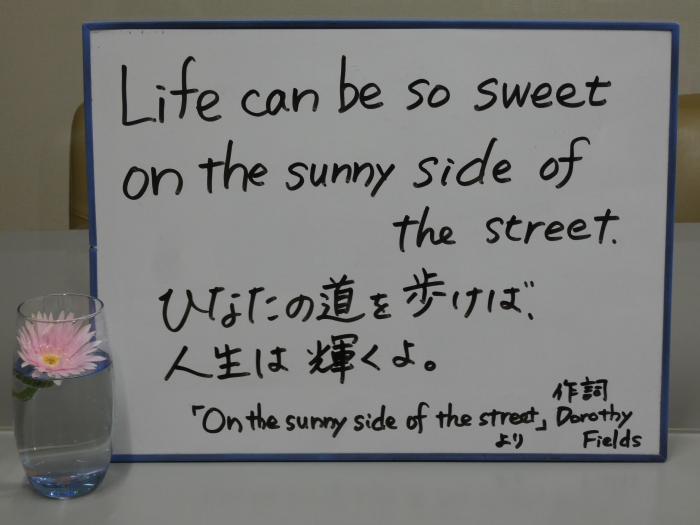 Life can be so sweet
on the sunny side of
the street.
ひなたの道を歩けば、
人生は輝くよ。
「On the sunny side of the street」より
作詞 Dorothy Fields